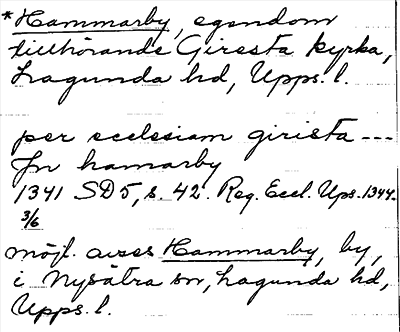 *Hammarby, egendom
tillhörande Giresta kyrka,
Lagunda hd, Upps. l.
per ecclesiam girista ---
Jn hamarby
1341 SD 5, s. 42. Reg. Eccl. Ups. 1344.
3/6
möjl. avses Hammarby, by,
i Nysätra sn, Lagunda hd,
Upps. l.